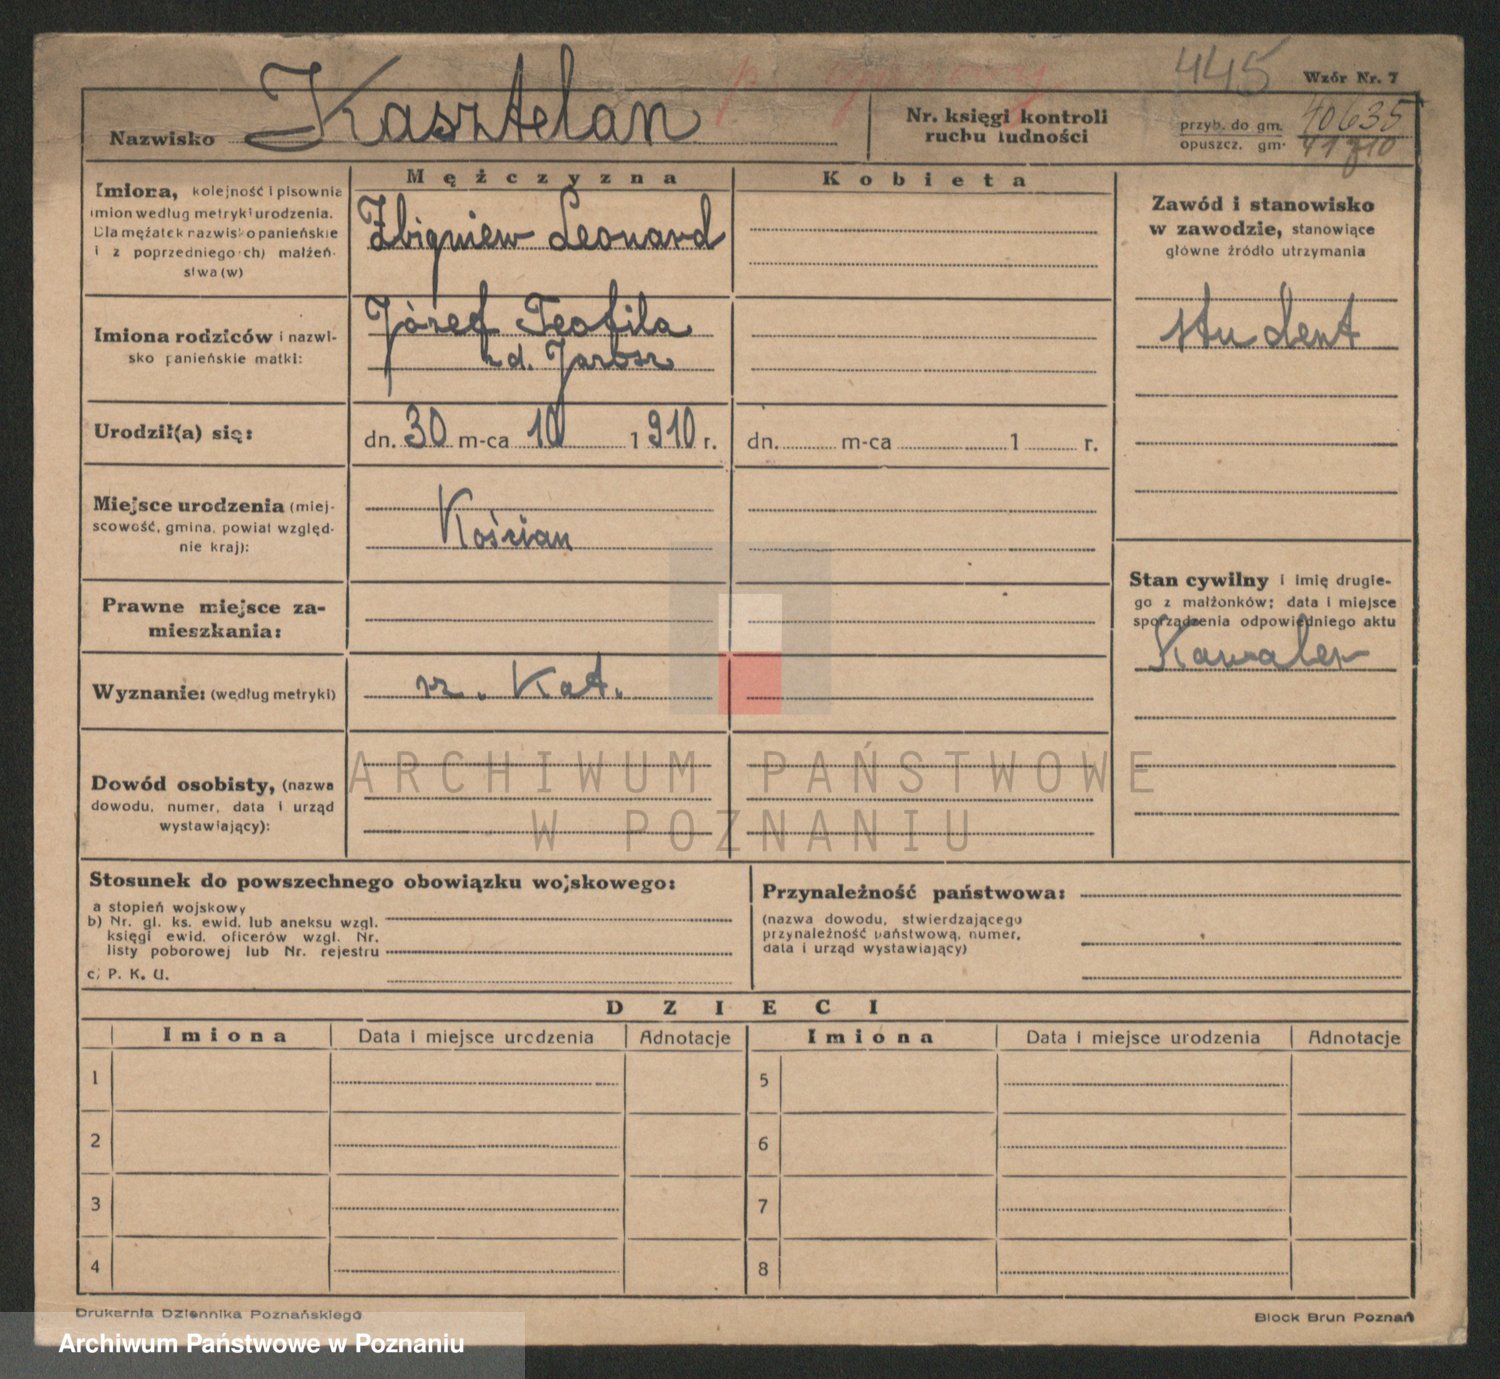 445
Wzór Nr. 7
Nazwisko Kasztelan
Nr. księgi kontroli
ruchu ludności
przyb. do gm. 40635
opuszcz. gm.
Mężczyzna
Kobieta
Imiona, kolejność i pisownia
imion według metryki urodzenia.
Dla mężatek nazwisko panieńskie
i z poprzedniego(ch) małżeń-
stwa (w)
Zbigniew Leonard
Zawód i stanowisko
w zawodzie, stanowiące
główne źródło utrzymania
student
Imiona rodziców i nazwi-
sko panieńskie matki:
Józef Teofila
z d. Jarosz
Urodził(a) się:
dn. 30 m-ca 10 1910 r.
dn. m-ca 1 r.
Miejsce urodzenia (miej-
scowość, gmina, powiat względ-
nie kraj):
Kościan
Stan cywilny i imię drugie-
go z małżonków; data i miejsce
sporządzenia odpowiedniego aktu
Kawaler
Prawne miejsce za-
mieszkania:
Wyznanie: (według metryki)
rz. Kat.
Dowód osobisty, (nazwa
dowodu, numer, data i urząd
wystawiający):
ARCHIWUM PAŃSTWOWE
W POZNANIU
Stosunek do powszechnego obowiązku wojskowego:
a stopień wojskowy
b) Nr. gl. ks. ewid. lub aneksu wzgl.
księgi ewid. oficerów wzgl. Nr.
listy poborowej lub Nr. rejestru
c) P. K. U.
Przynależność państwowa:
(nazwa dowodu, stwierdzającego
przynależność państwową, numer,
data i urząd wystawiający)
DZIECI
Imiona Data i miejsce urodzenia Adnotacje Imiona Data i miejsce urodzenia Adnotacje
1 5
2 6
3 7
4 8
Drukarnia Dziennika Poznańskiego
Block Brun Poznań
Archiwum Państwowe w Poznaniu